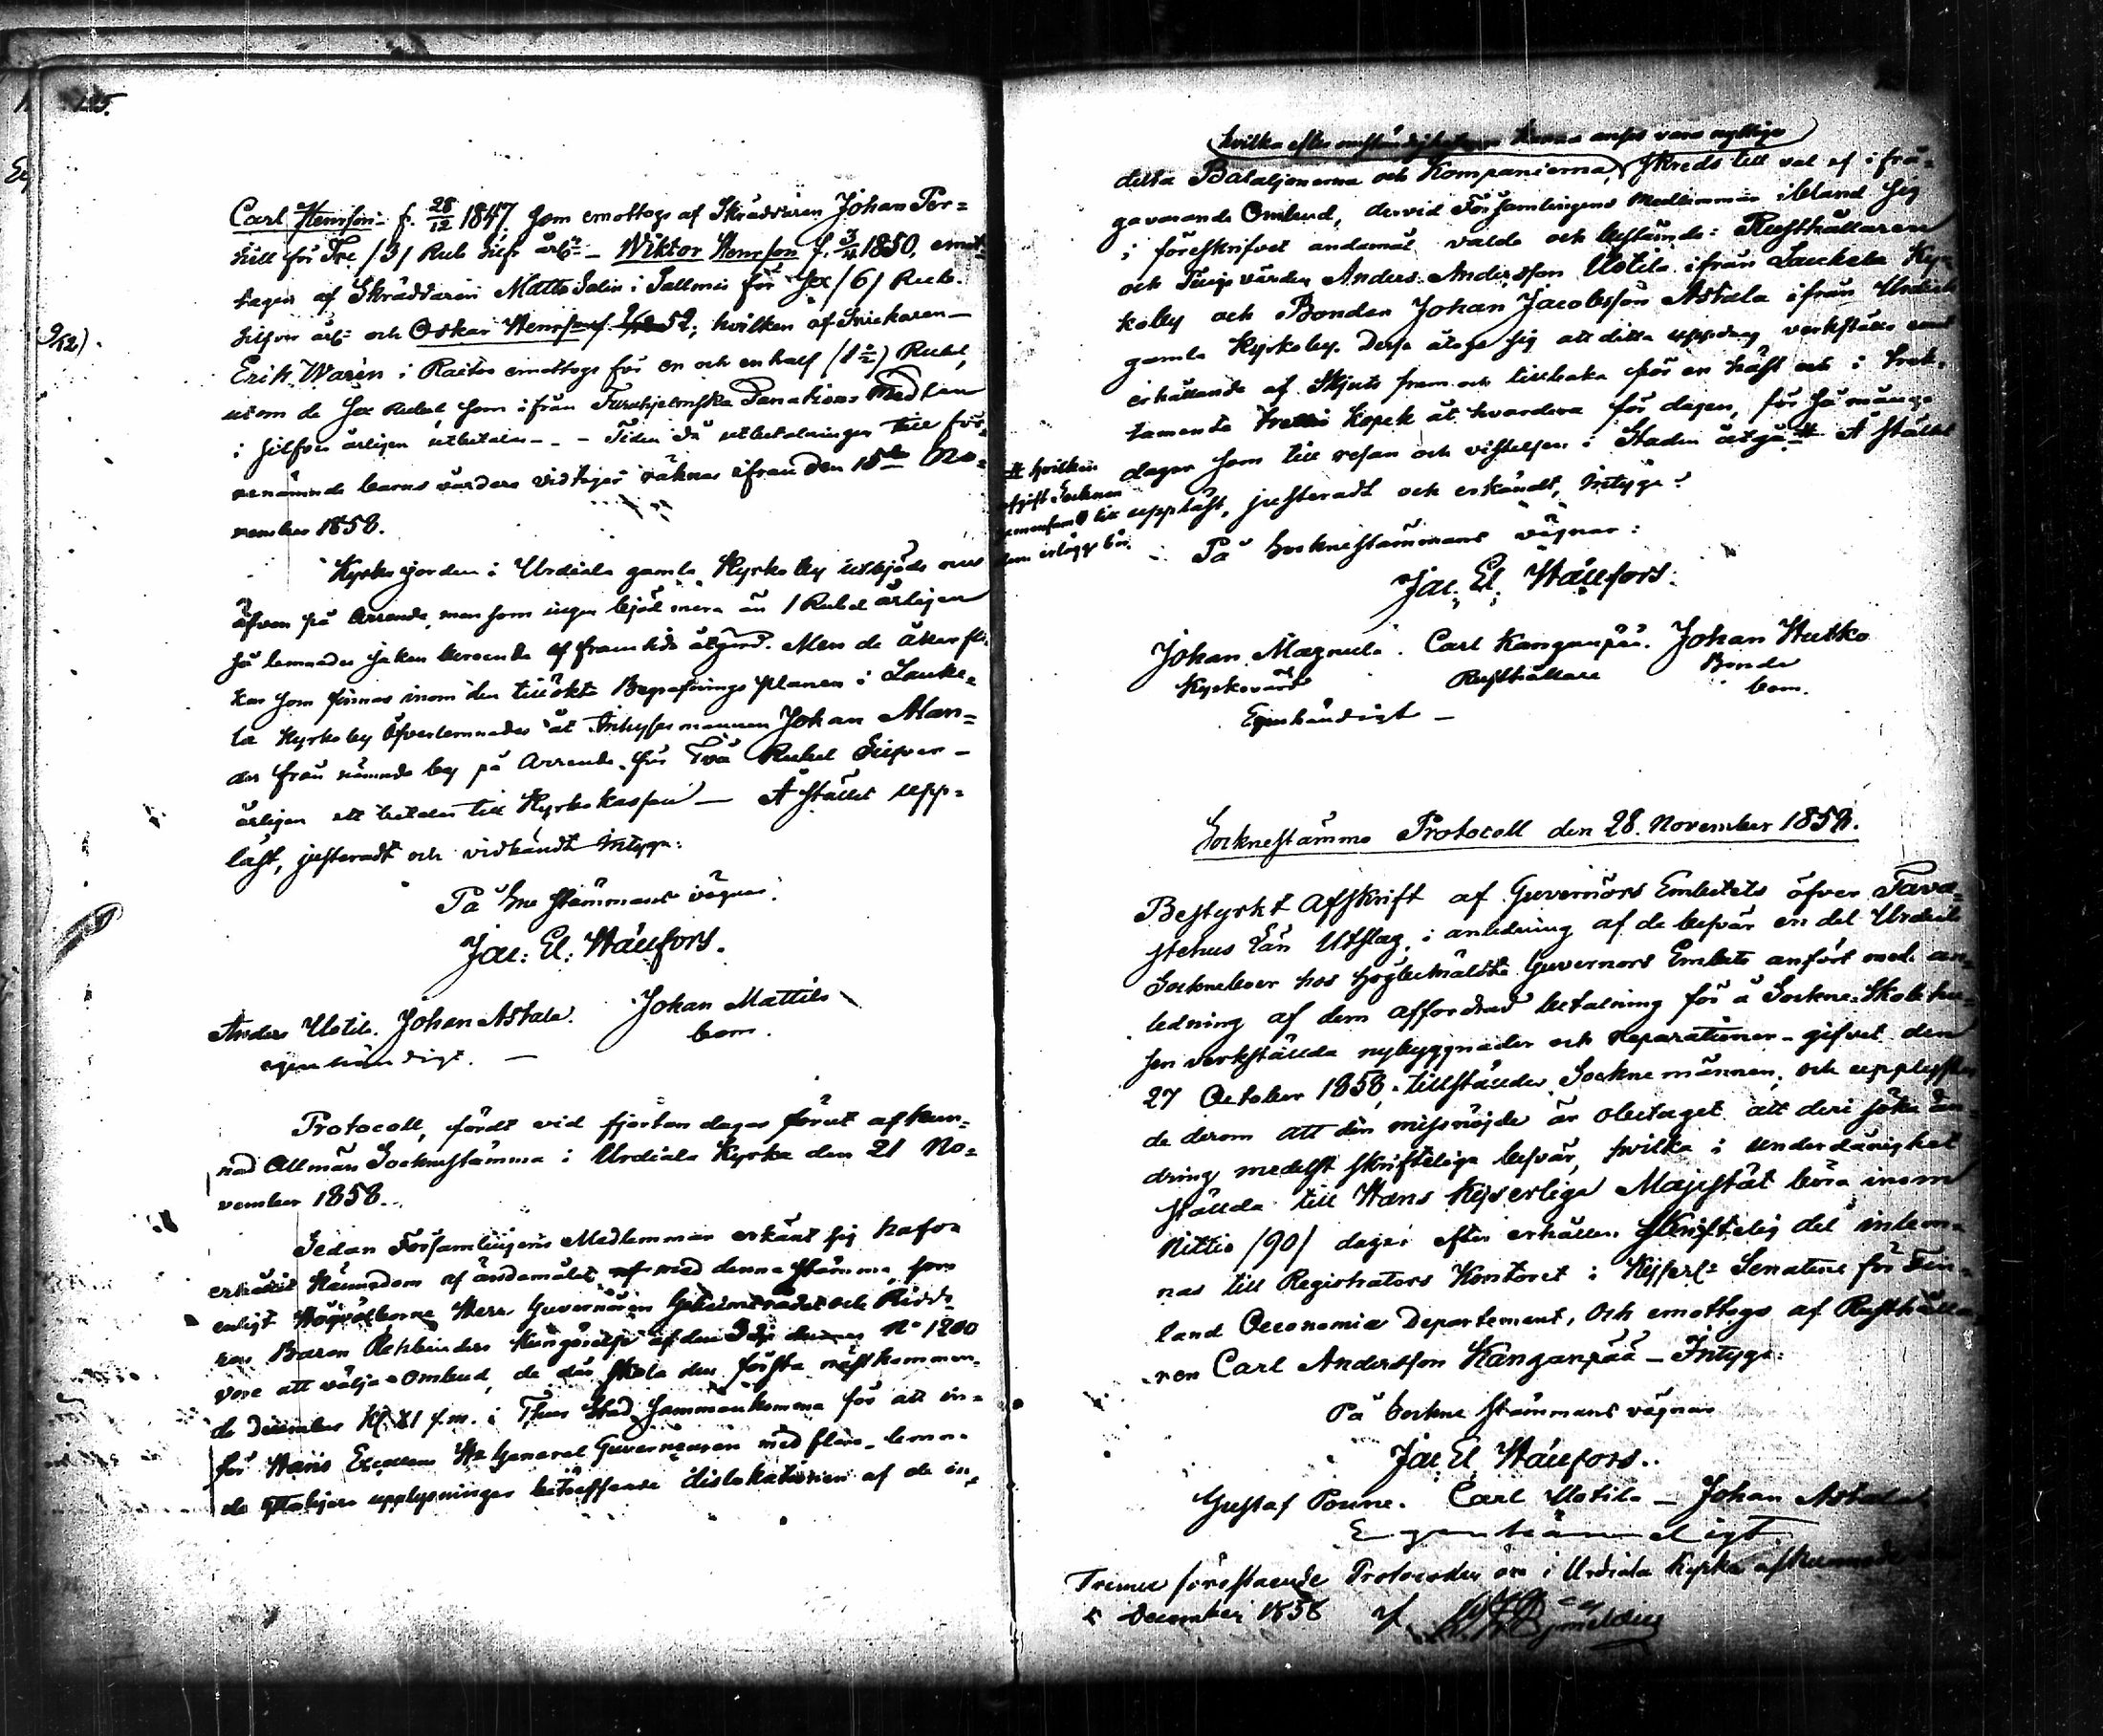 125.
Carl Henrsson f. 28/12 1847, som emottogs af Skräddaren Johan Per=
hill för Tre /3/ Rub silfr årl: _ Wiktor Henrsson f. 3/4 1850, emot
tagen af Skräddaren Matts Salin i Salmis för Sex /6/ Rub.
silfver årl: och Oskar Henrsson 52; hvilken af Snickaren _
Erik Warén i Raitos emottogs för en och en half (1 1/2) Rubel,
utom de Sex Rubel som ifrån Furuhjelmska Donations Medlen
i silfver årligen utbetalas _ _ _ Tiden då utbetalningen till för=
nämnde barns vårdare vidtager räknas ifrån den 15de No=
vember 1858.
Kyrkojorden i Urdiala gamla Kyrkoby utbjöds nu
äfven på Arrende, men som ingen bjöd mera än 1 Rubel årligen
så lemnades saken beroende af framtids åtgärd. Men de åkerflic
kar som finnas inom den tillökta Begrafnings planen i Lauke=
la Kyrkoby öfverlemnades åt Inhysesmannen Johan Alan=
der från nämnde by på Arrende för Två Rubel Silfver _
årligen att betalas till Kyrkokassan _ Å stället upp=
läst, justeradt och vidkändt Intyga:
På Sne stämmans vägnar:
Jac: El: Hällfors.
Anders Uotila. Johan Astala. Johan Mattila
egenhändigt. _ bom.
Protocoll, fördt vid fjorton dagar förut afkun=
nad Allmän Sockenstämma i Urdiala Kyrka den 21 No=
vember 1858.
Sedan Församlingens Medlemmar erkänt sig hafva
erhållit kännedom af ändamålet med denna stämma, som
enligt Högvälborne Herr Guvernören Geheimerådet och Ridda=
ren Baron Rehbinders Kungörelse af den 3dje dennes No 1200
vore att välja Ombud, de der skola den första nästkomman=
de december Kl. 11 f.m. i Thus Stad sammankomma för att in=
för Hans Excellens Hr General Guvernören med flera lemna
de ytterligare upplysningar beträffande dislokationen af de in=
hvilka efter omständigheterna kunna anses vara nyttige
delta Bataljonerna och Kompanierna, skreds till val af ifrå=
gavarande Ombud, dervid Församlingens Medlemmar ibland sig
i föreskrifvet ändamål valde och bestämde: Rusthållaren
och Tings värden Anders Andersson Uotila ifrån Laukela Kyr
koby och Bonden Johan Jacobsson Astala ifrån Urdiala
gamla Kyrkoby. Desse åtogo sig att detta uppdrag verkställa emot
erhållande af Skjuts fram och tillbaka för en häst och i trak=
tamente Kopek åt hvardera för dagen, för så många
dagar som till resan och vistelsen i Staden åtgå # Å stället
# hvilken
afgift Socknen
gemensamt till
dem erlägga bör.
uppläst, justeradt och erkändt, Intyga:
På Sockenstämmans vägnar:
Jac: El: Hällfors:
Johan Magnula. Carl Kanganpää. Johan Hutko
Kyrkovärd Rusthållare Bonde
Egenhändigt _ bom.
Sockenstämmo Protocoll den 28 November 1858.
Bestyrkt Afskrift af Guvernörs Embetets öfver Tava=
stehus Län Utslag, i anledning af de besvär en del Urdiala
Sockneboer hos högbemälda Guvernörs Embete anfört med an=
ledning af dem affordrad betalning för å Sockne Skolehu=
sen verkställda nybyggnader och Reparationer _ gifvet den
27 October 1858, tillställdes Sockne männen, och upplystes
de derom att den missnöjde är obetaget att deri söka än=
dring medelst skrifteliga besvär, hvilka i underdånighet
ställda till Hans Kejserliga Majestät böra inom
Nittio /90/ dagar efter erhållen skriftelig del inlem=
nas till Registrators Kontoret i Kejserl: Senatens för Fin=
land Oeconomiæ Departement, och emottogs af Rusthålla=
ren Carl Andersson Kanganpää _ Intyga:
På Sockne stämmans vägnar
Jac. El. Hällfors.
Gustaf Poune. Carl Uotila _ Johan Astala
Egenhändigt
Trenne föreståaende Protocoller äro i Urdiala Kyrka afkunnade
5 December 1858 af